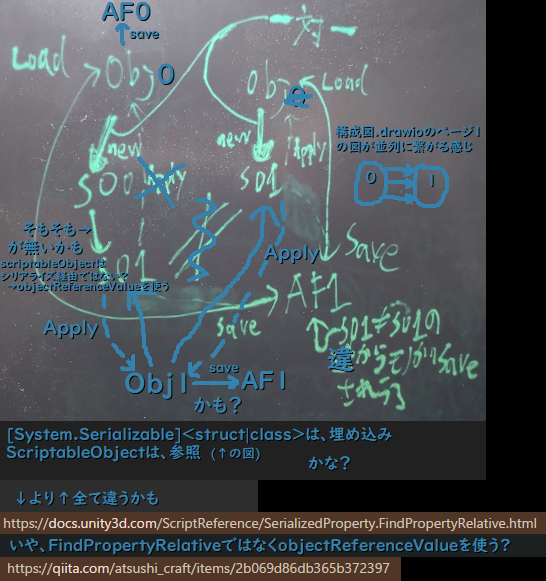 AF0
save
Load
Obj0
一対一
Obj
Load
new
Apply
new
Apply
構成図.drawioのページ1
の図が並列に繋がる感じ
0 1
SO0
SO1
そもそも→
が無いかも
scriptableObjectは
シリアライズ経由ではない?
→objectReferenceValueを使う
SO1
Apply
Save
AF1
Apply
save
SO1≠SO1の
違
save
Obj1
save
AF1
かも?
[System.Serializable]<struct|class>は、埋め込み
ScriptableObjectは、参照 (↑の図)
かな?
↓より↑全て違うかも
https://docs.unity3d.com/ScriptReference/SerializedProperty.FindPropertyRelative.html
いや、FindPropertyRelativeではなくobjectReferenceValueを使う?
https://qiita.com/atsushi_craft/items/2b069d86db365b372397